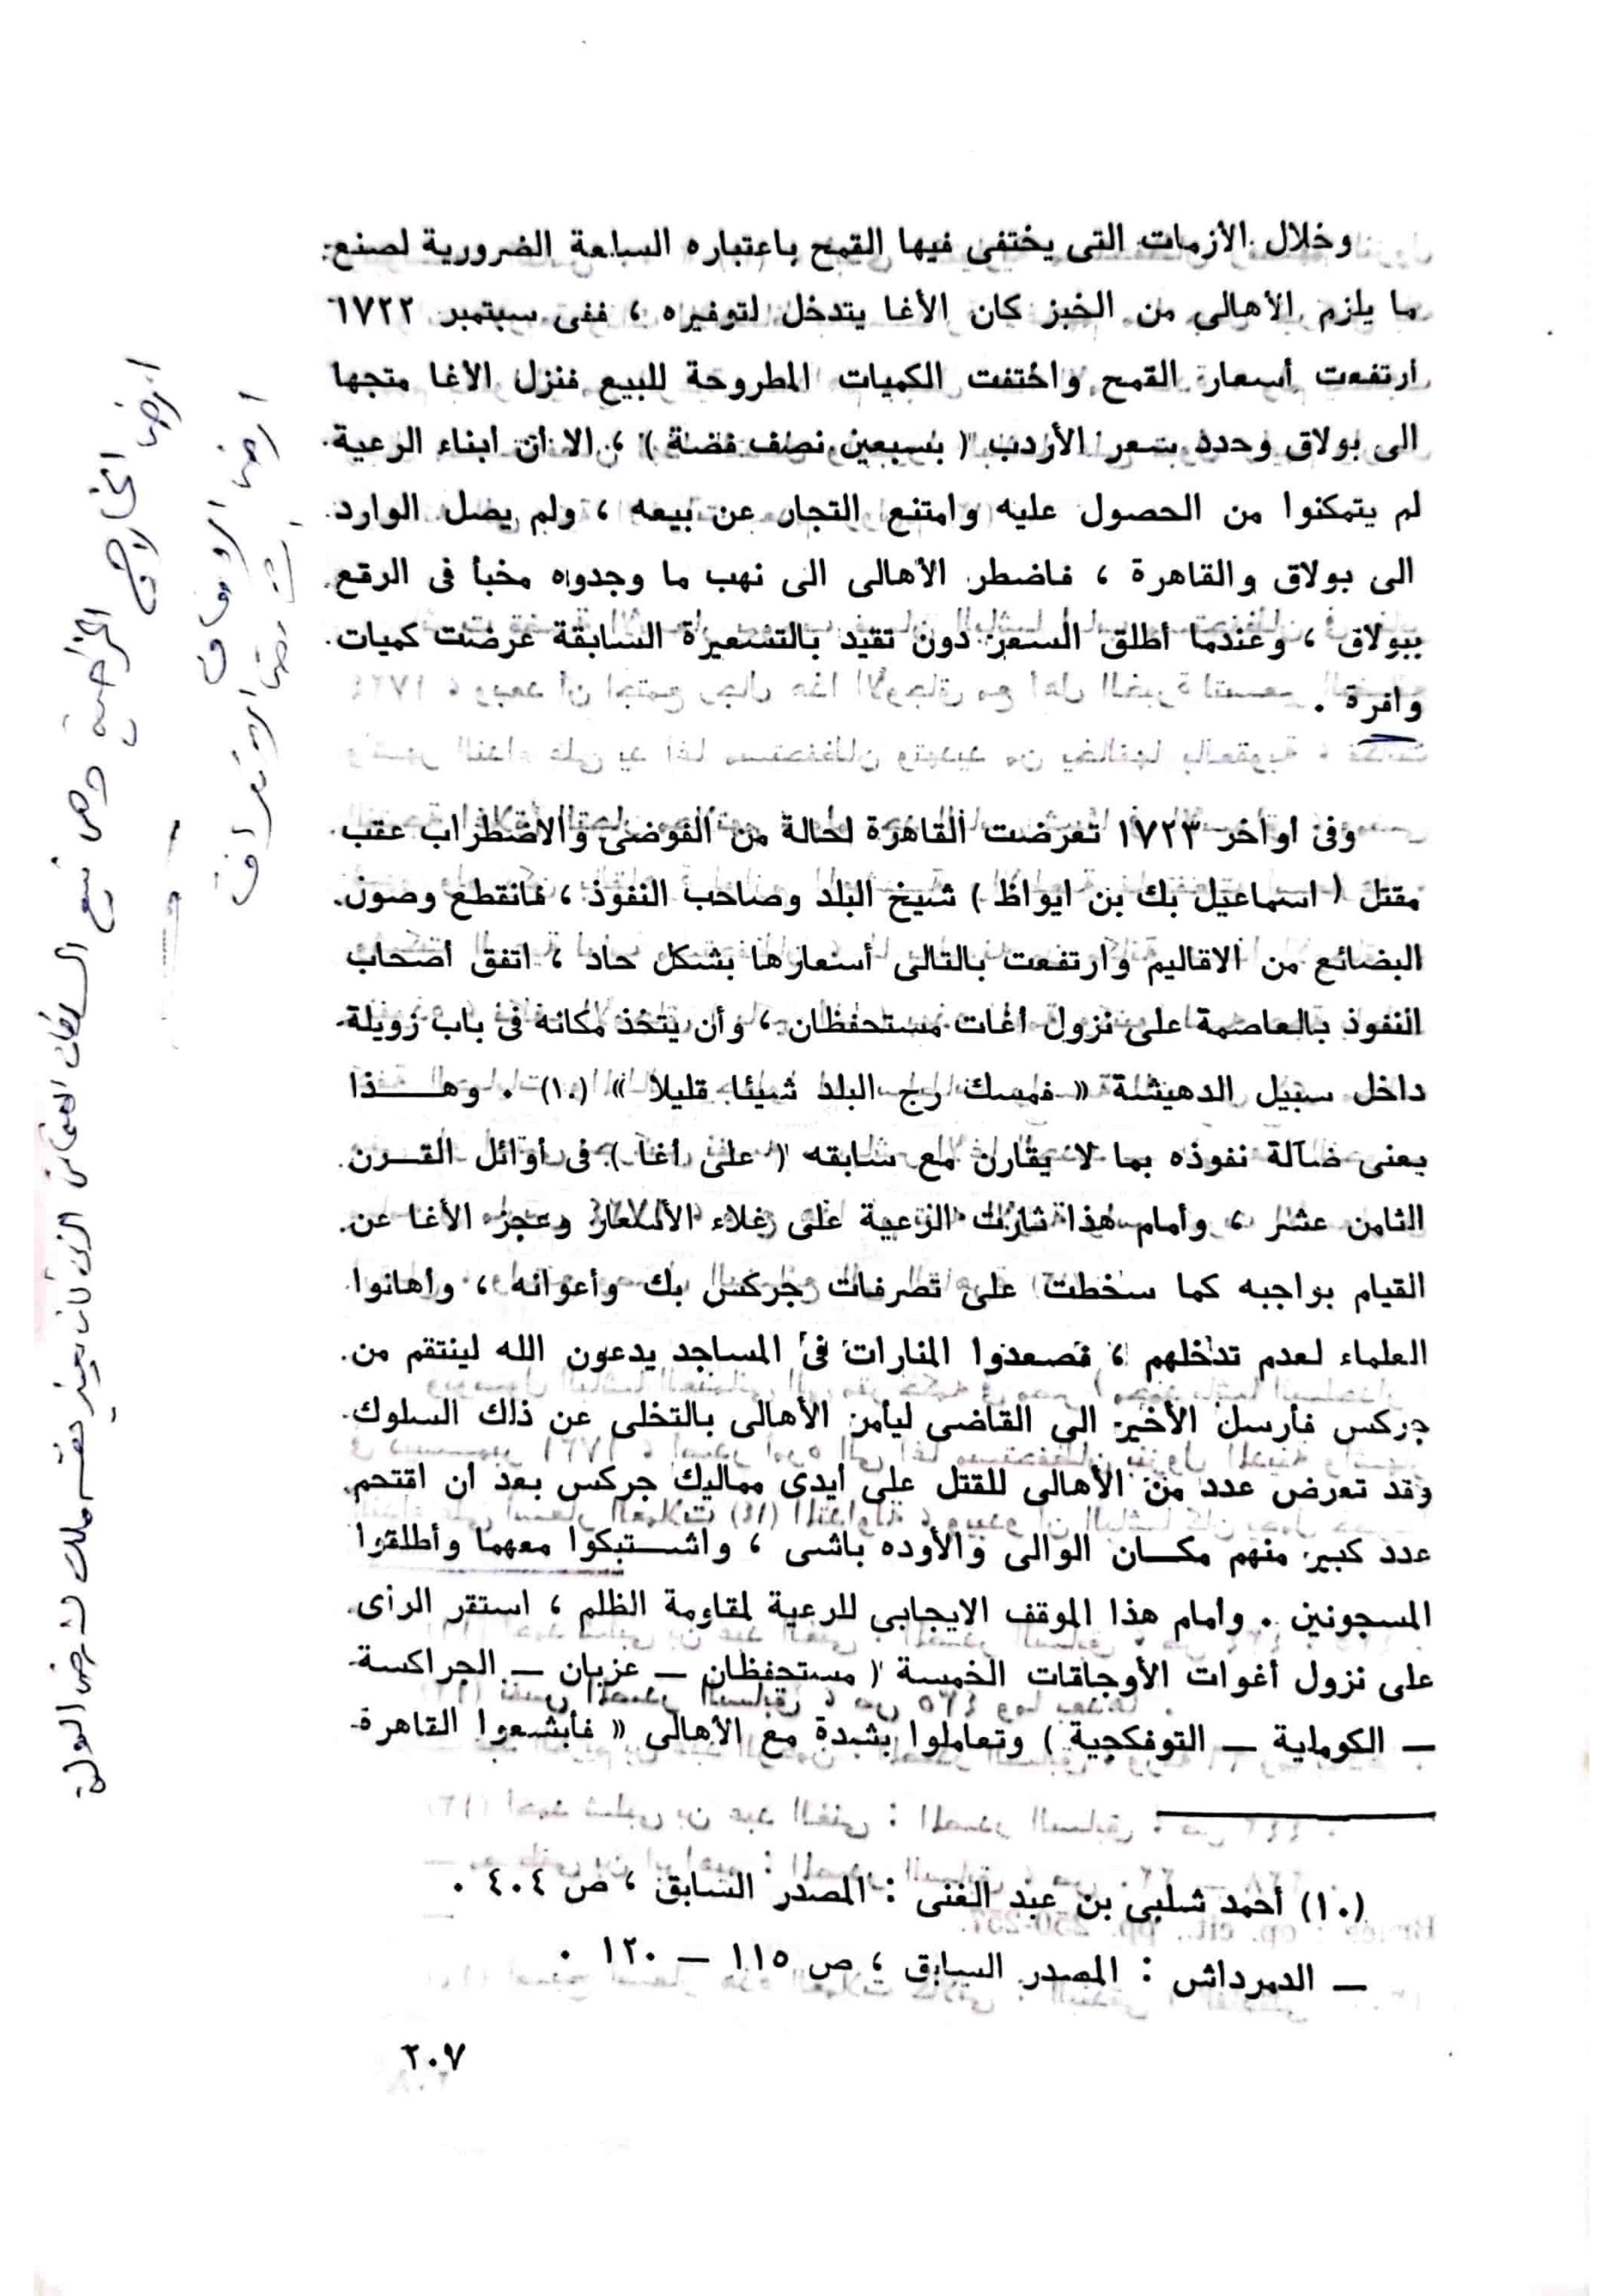 وخلال الأزمات التى يختفى فيها القمح باعتباره السلعة الضرورية لصنع
ما يلزم الأهالى من الخبز كان الأغا يتدخل لتوفيره ، ففى سبتمبر ١٧٢٢
ارتفعت أسعار القمح واختفت الكميات المطروحة للبيع فنزل الأغا متجها
الى بولاق وحدد سعر الأردب ( بسبعين نصف فضة ) ، الا أن ابناء الرعية
لم يتمكنوا من الحصول عليه وامتنع التجار عن بيعه ، ولم يصل الوارد
الى بولاق والقاهرة ، فاضطر الأهالى الى نهب ما وجدوه مخبأ فى الرقع
ببولاق ، وعندما أطلق السعر دون تقيد بالتسعيرة السابقة عرضت كميات
وافرة .
وفى أواخر ١٧٢٣ تعرضت القاهرة لحالة من الفوضى والاضطراب عقب
مقتل ( اسماعيل بك بن ايواظ ) شيخ البلد وصاحب النفوذ ، فانقطع وصول
البضائع من الاقاليم وارتفعت بالتالى أسعارها بشكل حاد ، اتفق أصحاب
النفوذ بالعاصمة على نزول أغات مستحفظان ، وأن يتخذ مكانه فى باب زويلة
داخل سبيل الدهيشة « فمسك رج البلد شيئا قليلا » (١٠) . وهـــذا
يعنى ضآلة نفوذه بما لا يقارن مع سابقه ( على أغا ) فى أوائل القــرن
الثامن عشر ، وأمام هذا ثارت الرعية على غلاء الأسعار وعجز الأغا عن
القيام بواجبه كما سخطت على تصرفات جركس بك وأعوانه ، وأهانوا
العلماء لعدم تدخلهم ، فصعدوا المنارات فى المساجد يدعون الله لينتقم من
جركس فأرسل الأخير الى القاضى ليأمر الأهالى بالتخلى عن ذلك السلوك
وقد تعرض عدد من الأهالى للقتل على أيدى مماليك جركس بعد ان اقتحم
عدد كبير منهم مكــان الوالى والأوده باشى ، واشــتبكوا معهما وأطلقوا
المسجونين . وأمام هذا الموقف الايجابى للرعية لمقاومة الظلم ، استقر الرأى
على نزول أغوات الأوجاقات الخمسة ( مستحفظان — عزبان — الجراكسة
— الكوملية — التوفكجية ) وتعاملوا بشدة مع الأهالى « فأبشعوا القاهرة
(١٠) أحمد شلبى بن عبد الغنى : المصدر السابق ، ص ٤٠٤ .
— الدمرداش : المصدر السابق ، ص ١١٥ — ١٢٠ .
٢٠٧
ارض الاوقاف
ارض الخراجية وهى تتبع السلطان العثمانى الذى كان يعتبر نفسه ملك لأرض الدولة